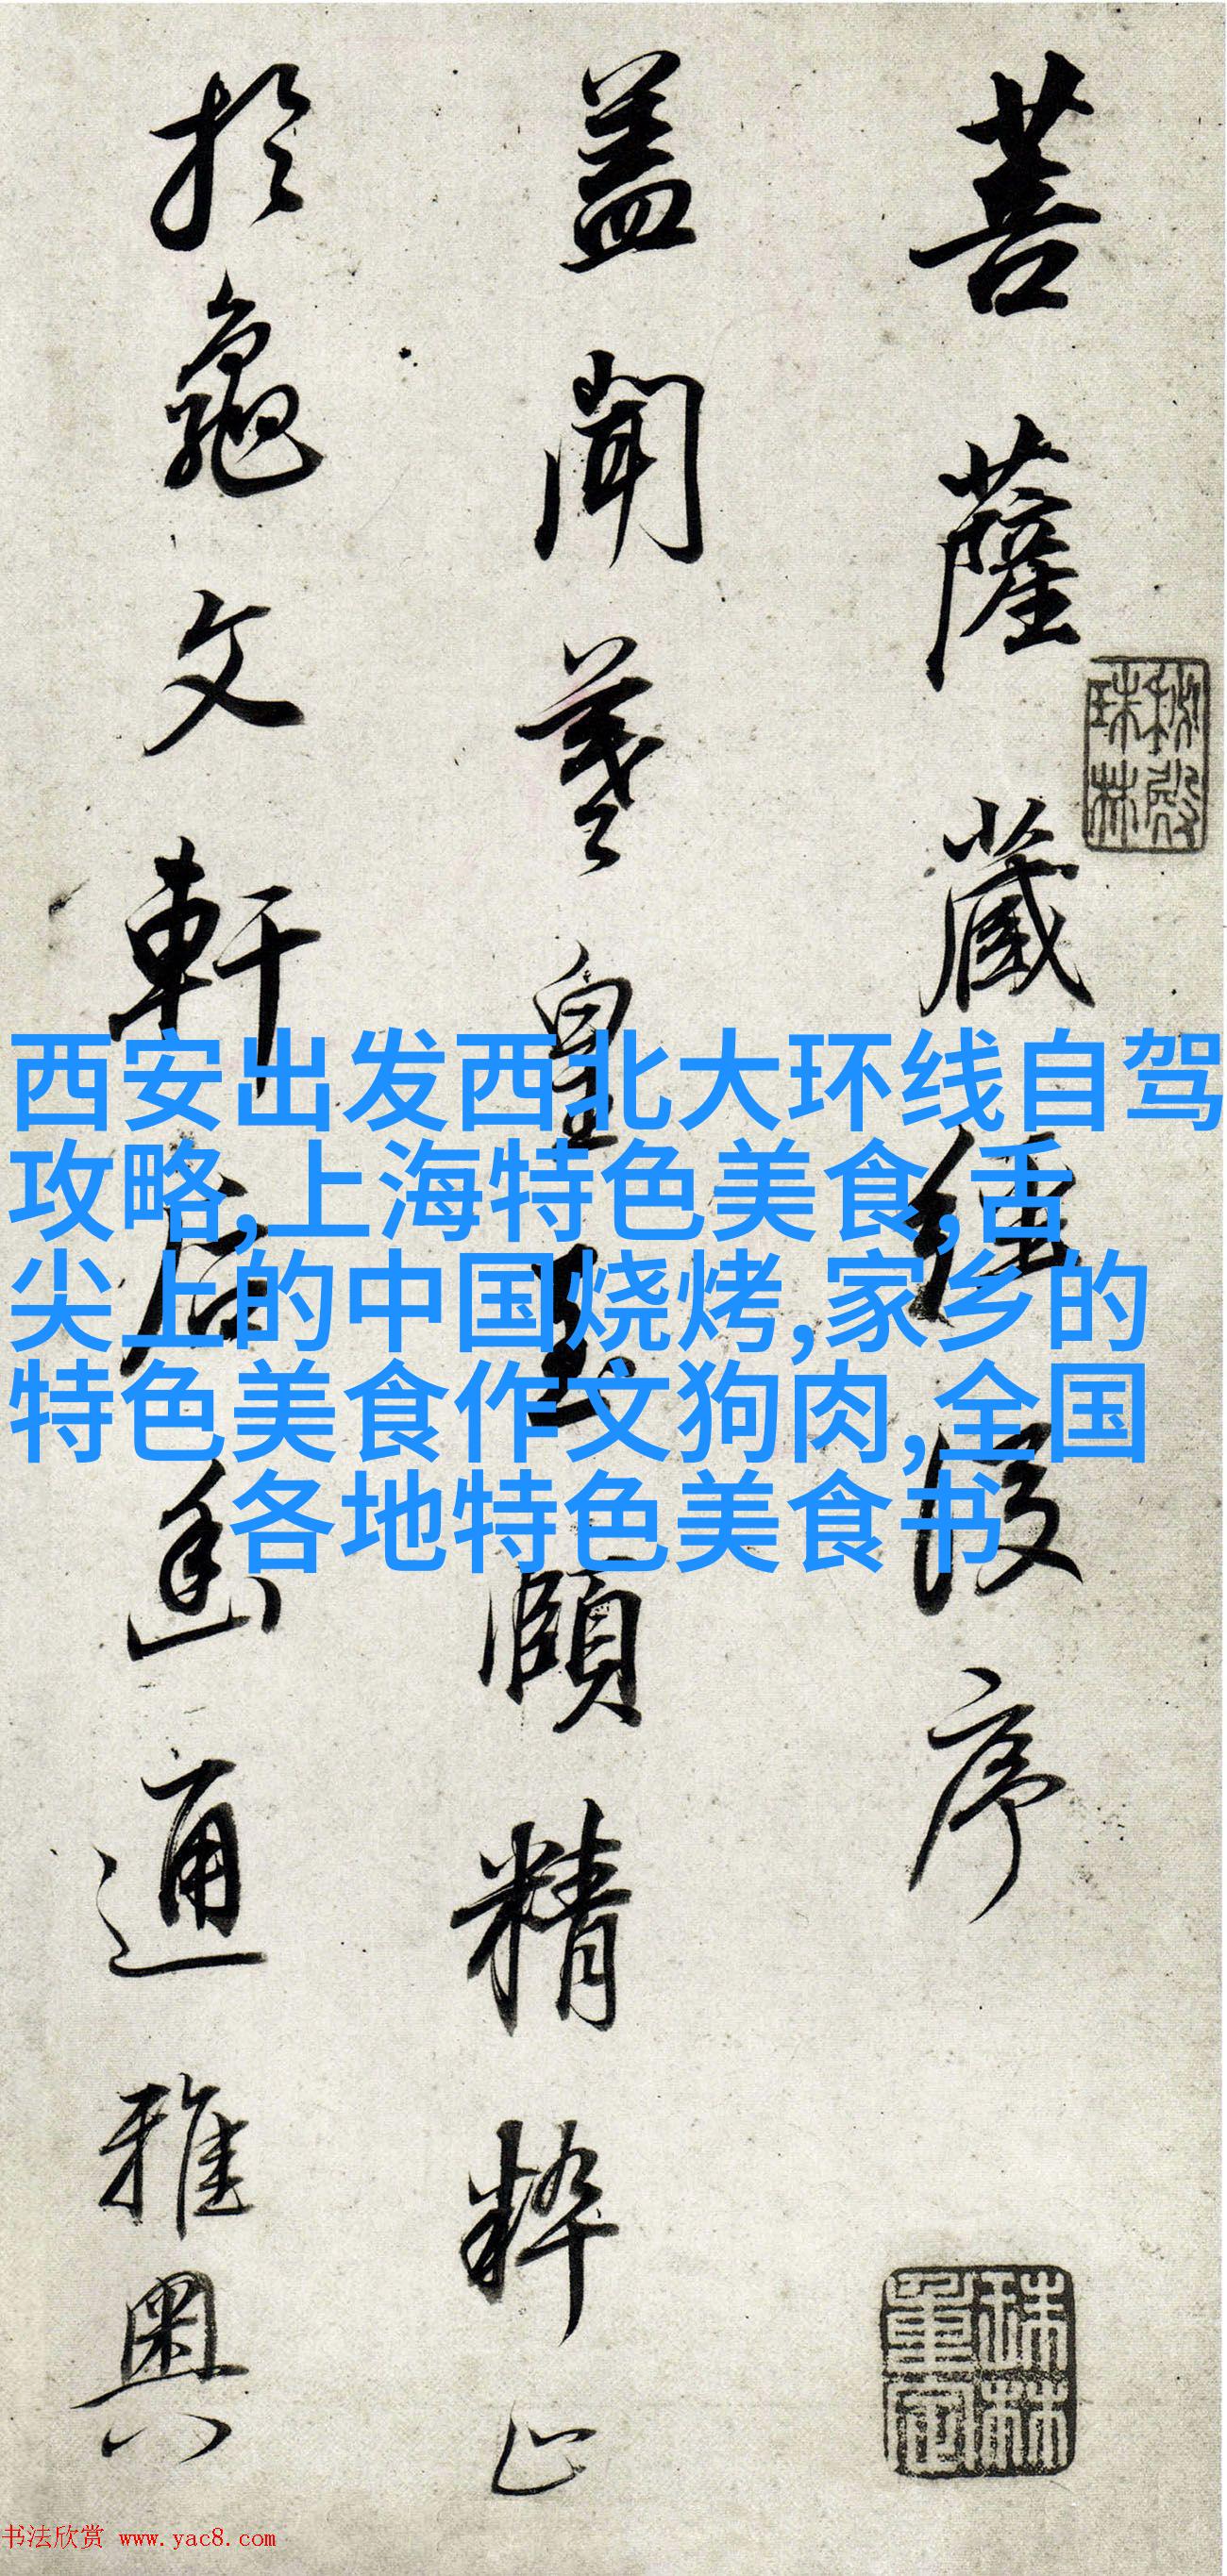 菩薩蔵經後序
蓋聞羲皇至賾精粹止
於龜文軒后幽通雅奧
秘殿
珠林
珠林
重定
西安出发西北大环线自驾
攻略,上海特色美食,舌
尖上的中国烧烤,家乡的
特色美食作文狗肉,全国
各地特色美食书
书法欣赏 www.yac8.com